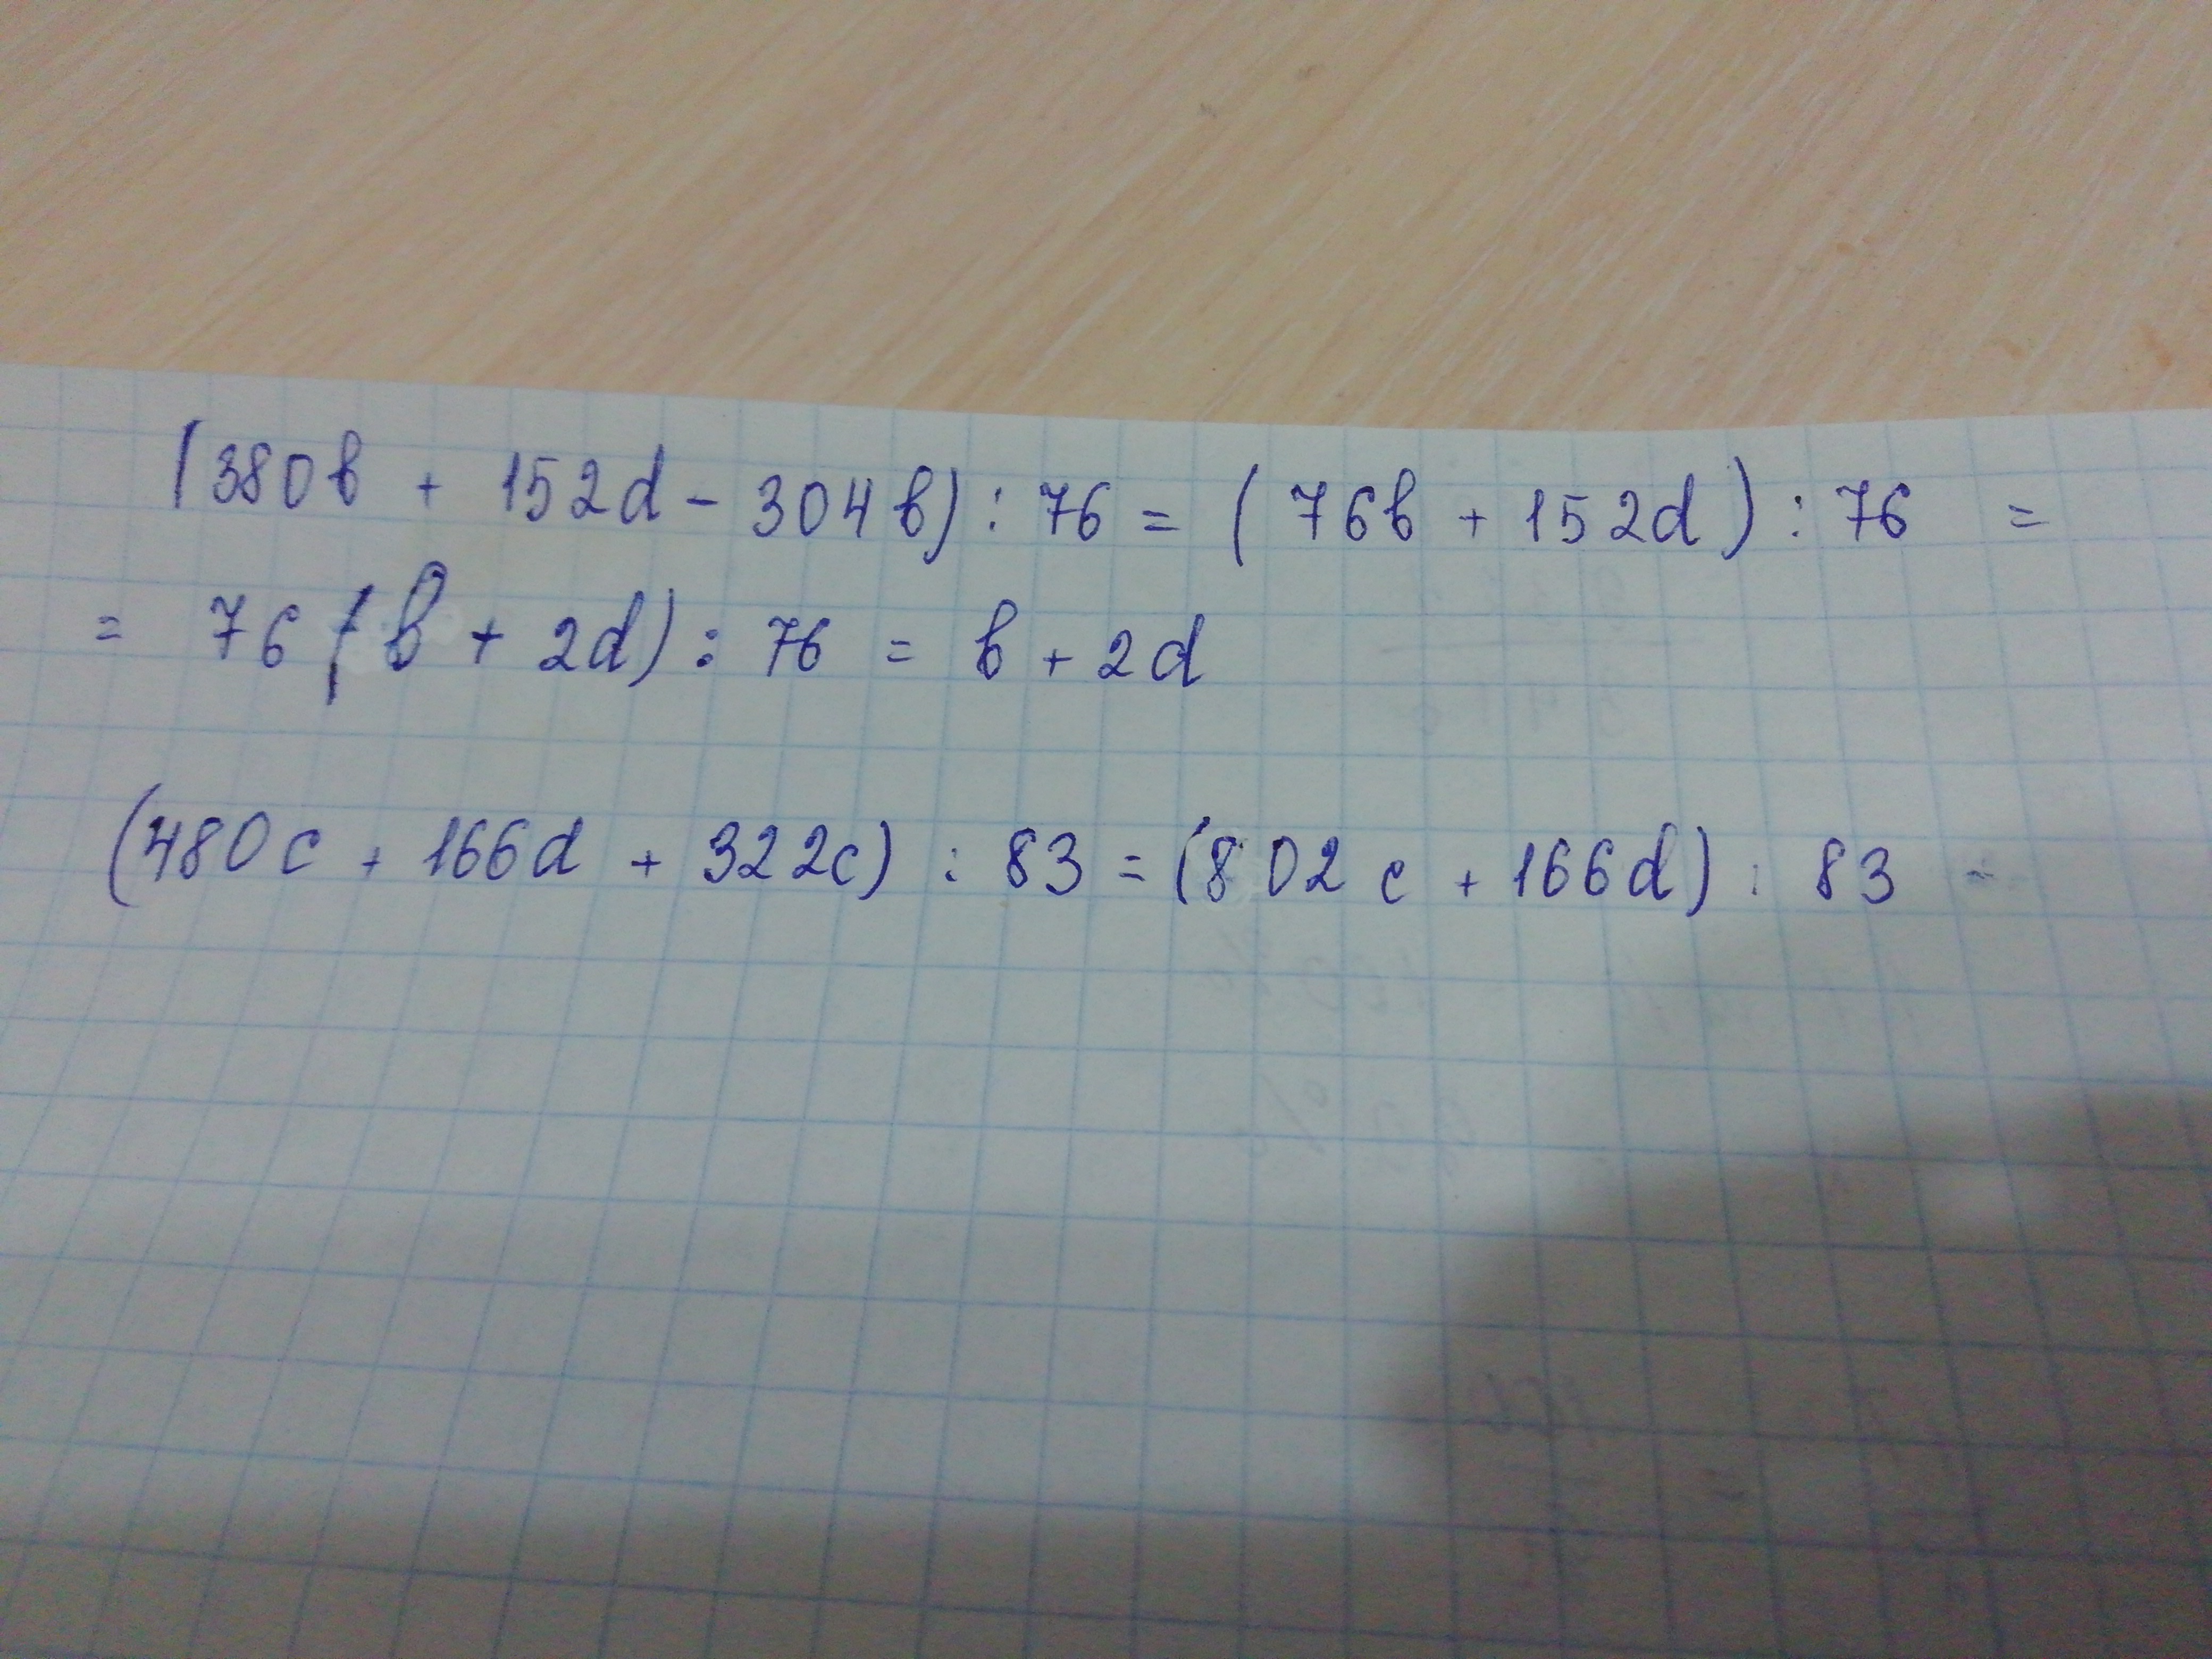 (380b + 152d - 304b) : 76 = (76b + 152d) : 76 =
= 76(b + 2d) : 76 = b + 2d
(480c + 166d + 322c) : 83 = (802c + 166d) : 83 =